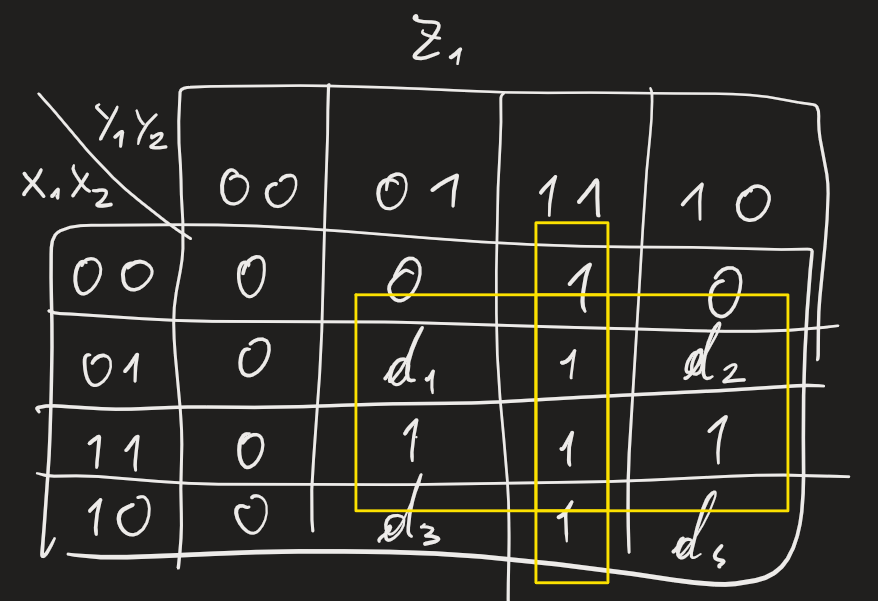 Z₁
Y₁Y₂
X₁X₂
00 01 11 10
00 0 0 1 0
01 0 d₁ 1 d₂
11 0 1 1 1
10 0 d₃ 1 d₅